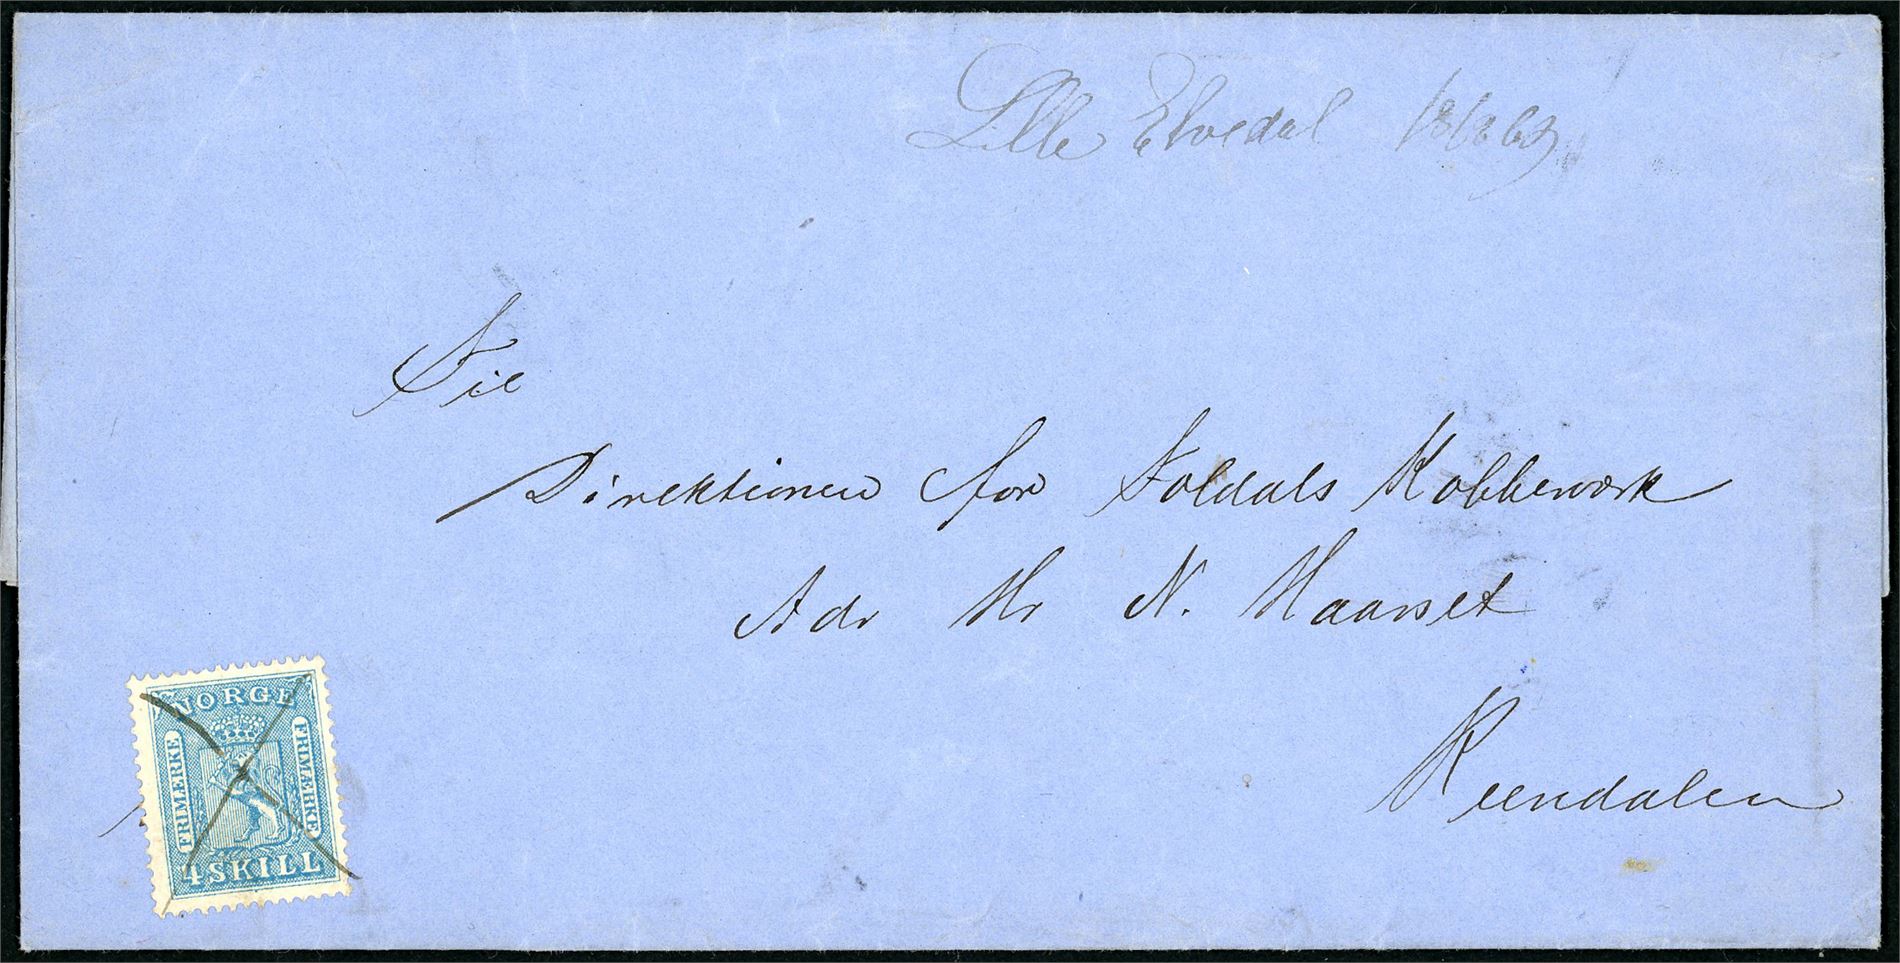 Lille Elvedal 18/2 69
Til
Direktionen for Foldals Kobberværk
Adr Hr N. Haarset
Reendalen
NORGE
FRIMÆRKE
FRIMÆRKE
4 SKILL